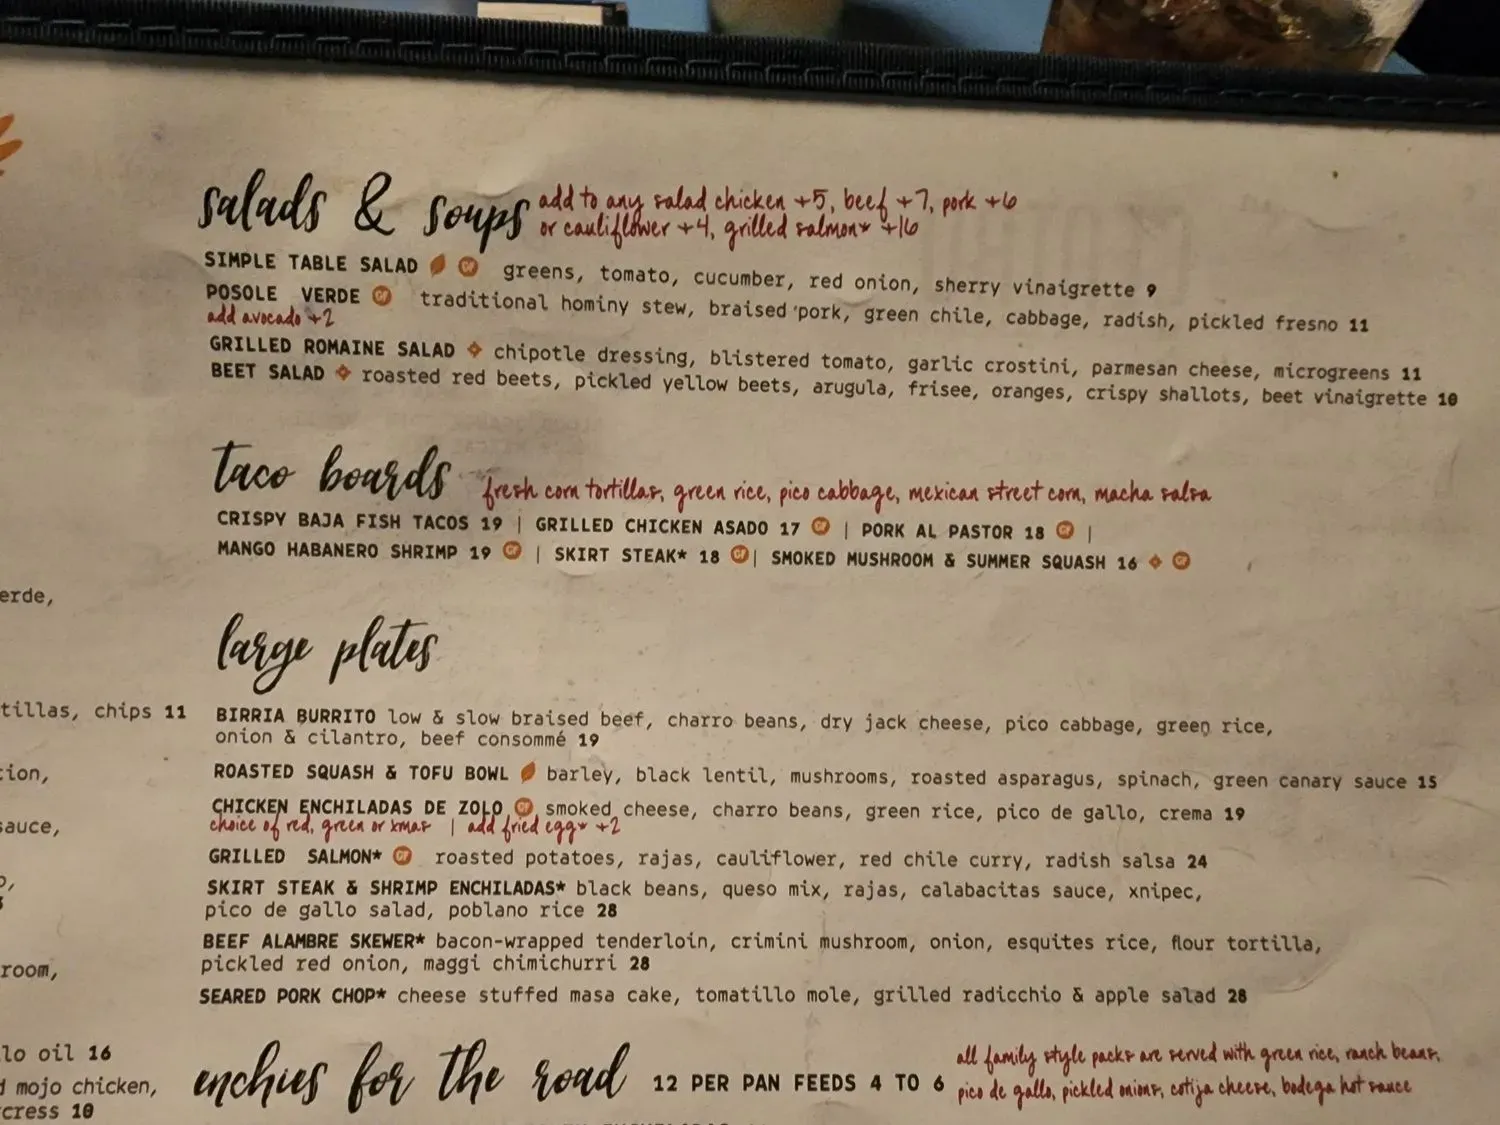 salads & soups add to any salad chicken +5, beef +7, pork +6
or cauliflower +4, grilled salmon* +16
SIMPLE TABLE SALAD GF greens, tomato, cucumber, red onion, sherry vinaigrette 9
POSOLE VERDE GF traditional hominy stew, braised pork, green chile, cabbage, radish, pickled fresno 11
add avocado +2
GRILLED ROMAINE SALAD chipotle dressing, blistered tomato, garlic crostini, parmesan cheese, microgreens 11
BEET SALAD roasted red beets, pickled yellow beets, arugula, frisee, oranges, crispy shallots, beet vinaigrette 10
taco boards fresh corn tortillas, green rice, pico cabbage, mexican street corn, macha salsa
CRISPY BAJA FISH TACOS 19 | GRILLED CHICKEN ASADO 17 GF | PORK AL PASTOR 18 GF |
MANGO HABANERO SHRIMP 19 GF | SKIRT STEAK* 18 GF | SMOKED MUSHROOM & SUMMER SQUASH 16 GF
erde,
large plates
tillas, chips 11
BIRRIA BURRITO low & slow braised beef, charro beans, dry jack cheese, pico cabbage, green rice,
onion & cilantro, beef consommé 19
tion,
ROASTED SQUASH & TOFU BOWL barley, black lentil, mushrooms, roasted asparagus, spinach, green canary sauce 15
CHICKEN ENCHILADAS DE ZOLO GF smoked cheese, charro beans, green rice, pico de gallo, crema 19
sauce,
choice of red, green or xmas | add fried egg* +2
GRILLED SALMON* GF roasted potatoes, rajas, cauliflower, red chile curry, radish salsa 24
SKIRT STEAK & SHRIMP ENCHILADAS* black beans, queso mix, rajas, calabacitas sauce, xnipec,
pico de gallo salad, poblano rice 28
BEEF ALAMBRE SKEWER* bacon-wrapped tenderloin, crimini mushroom, onion, esquites rice, flour tortilla,
pickled red onion, maggi chimichurri 28
room,
SEARED PORK CHOP* cheese stuffed masa cake, tomatillo mole, grilled radicchio & apple salad 28
lo oil 16
mojo chicken,
cress 10
enchies for the road 12 PER PAN FEEDS 4 TO 6 all family style packs are served with green rice, ranch beans,
pico de gallo, pickled onions, cotija cheese, bodega hot sauce